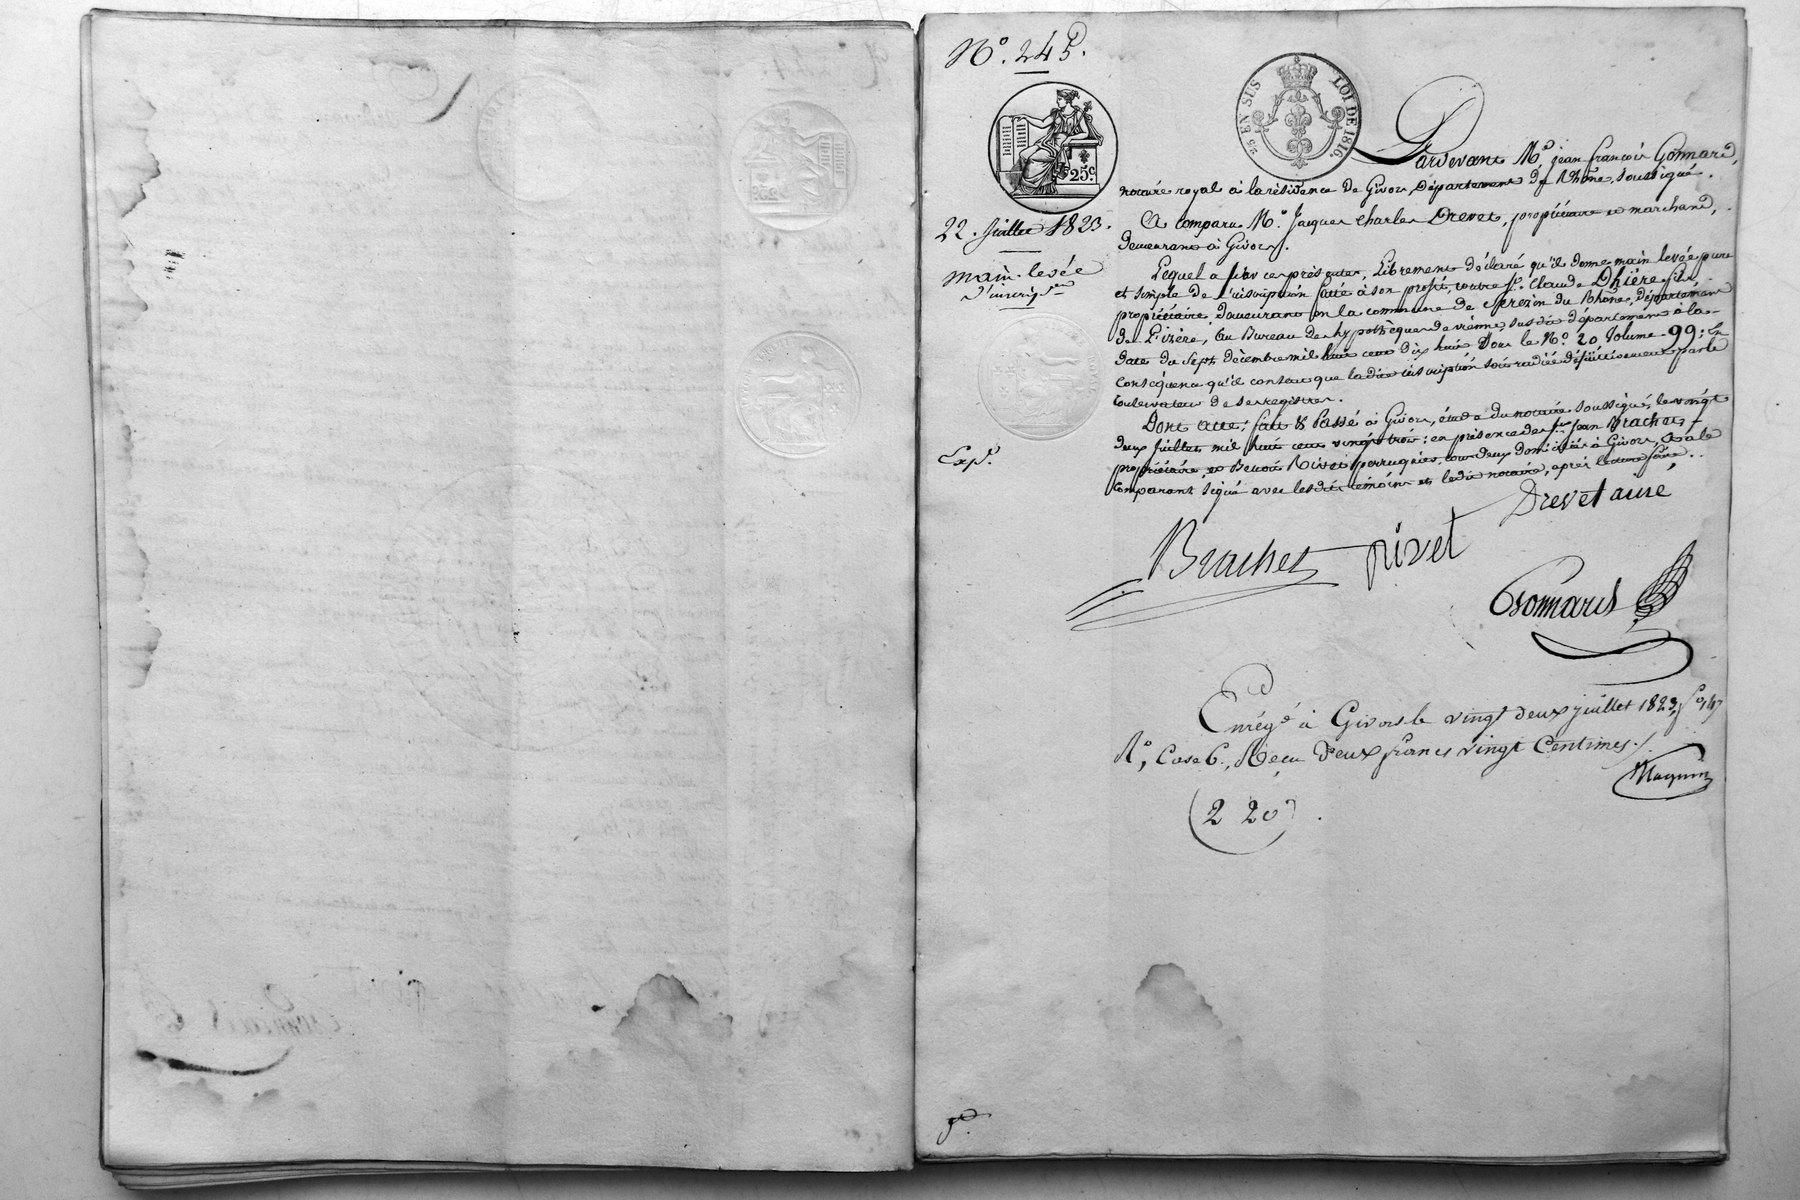 N.º 245.
25 EN SUS
LOI DE 1816.
25 c.
Pardevant M.e jean françois Gonnard,
notaire royal à la résidence de Givors, Département du Rhône, soussigné.
22. Juillet 1823.
A comparu M.r Jacques Charles Drevet, propriétaire et marchand,
demeurant à Givors.
Main-levée
d'inscrip.on
Lequel a par ces présentes, Librement déclaré qu'il donne main levée pure
et simple de L'inscription faite à son profit, contre S.r Claude Dhière fils,
propriétaire, demeurant en la commune de Serezin du Rhône, département
de L'izère, Au Bureau des hypothèques de vienne, susdit département à la
date du Sept décembre mil huit cent dix huit Sous le N.º 20 Volume 99 : En
Conséquence qu'il consent que ladite inscription soit radiée définitivement par le
Conservateur de ses registres.
Dont acte ; fait & Passé à Givors, étude du notaire soussigné, le vingt
deux juillet mil huit cent vingt trois ; en présence des S.rs jean Brachet,
propriétaire, et Benoit Rivet perruquier, tous deux domiciliés à Givors, et a le
Comparant signé avec lesdits témoins et ledit notaire, après lecture faite.
Exp.é
Drevet ainé
Brachet rivet
Gonnard
Enrég.é à Givors le vingt deux juillet 1823, f.º 147
R.º, Case 6., Reçu Deux francs vingt Centimes./.
Magnin
(2 20)